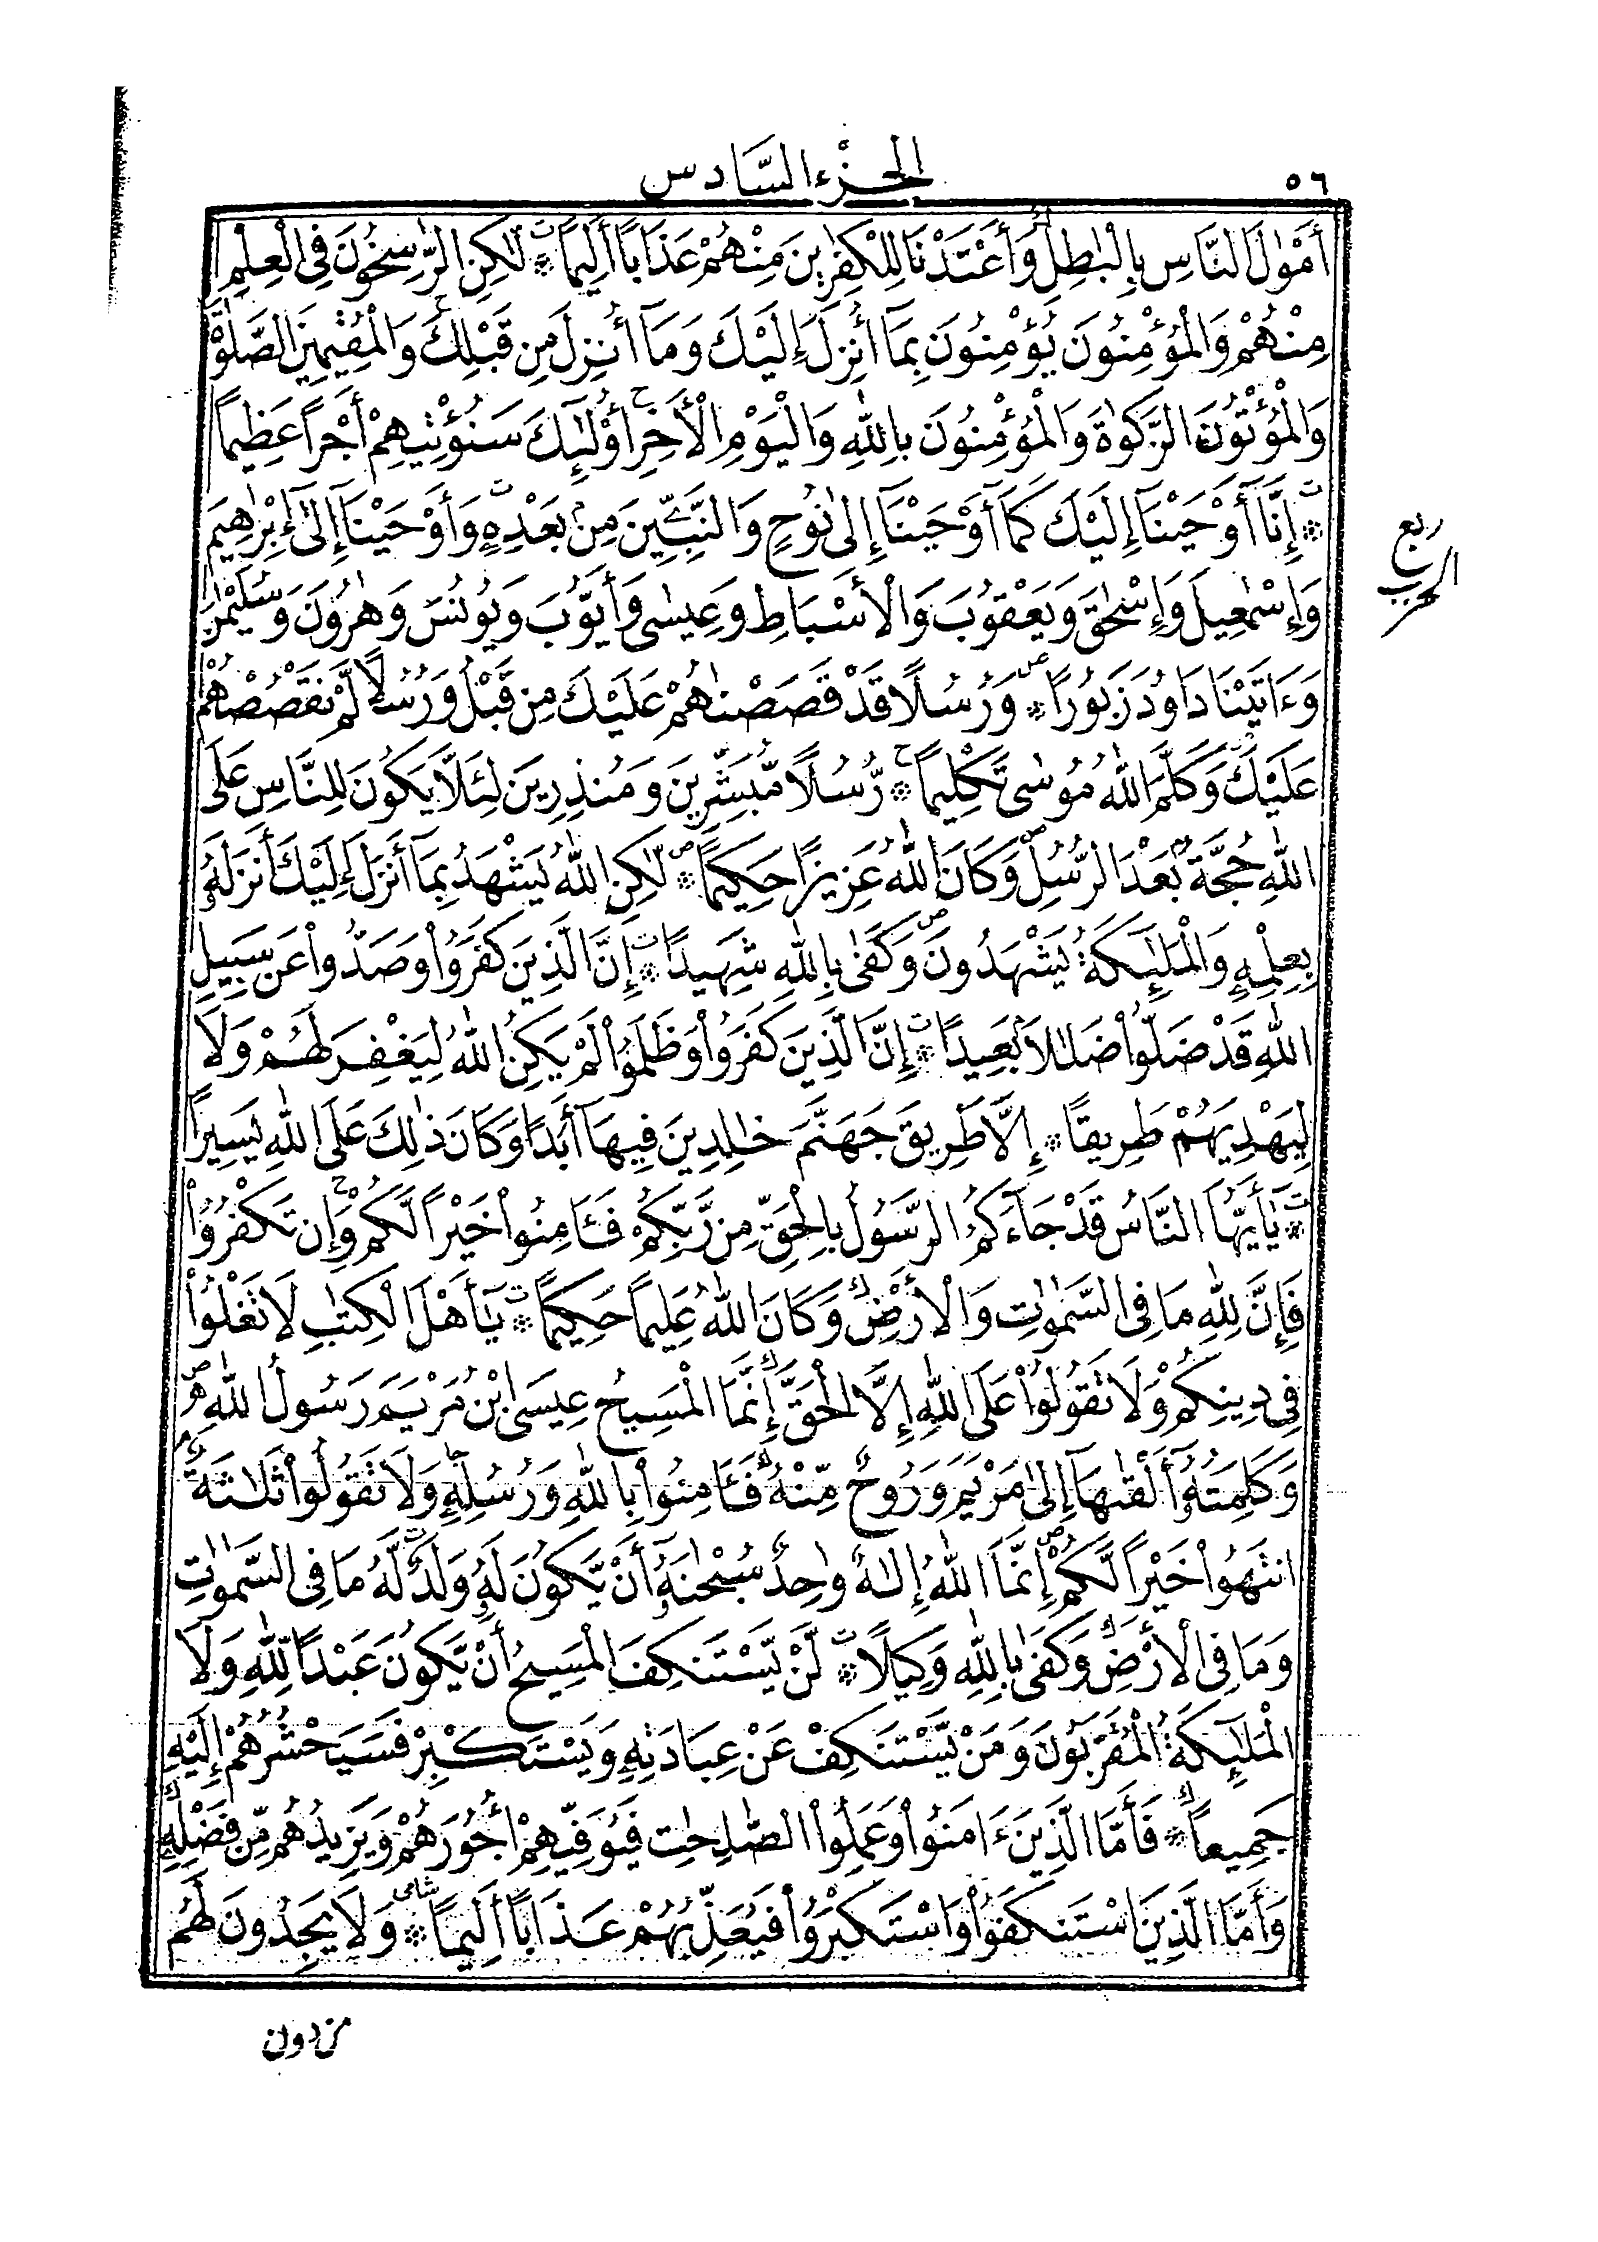 ٥٦
الجزء السادس
أَمْوَٰلَ النَّاسِ بِالْبَٰطِلِ وَأَعْتَدْنَا لِلْكَٰفِرِينَ مِنْهُمْ عَذَابًا أَلِيمًا ۞ لَّٰكِنِ الرَّٰسِخُونَ فِى الْعِلْمِ
مِنْهُمْ وَالْمُؤْمِنُونَ يُؤْمِنُونَ بِمَآ أُنزِلَ إِلَيْكَ وَمَآ أُنزِلَ مِن قَبْلِكَ وَالْمُقِيمِينَ الصَّلَوٰةَ
وَالْمُؤْتُونَ الزَّكَوٰةَ وَالْمُؤْمِنُونَ بِاللَّهِ وَالْيَوْمِ الْأَخِرِ أُو۟لَٰٓئِكَ سَنُؤْتِيهِمْ أَجْرًا عَظِيمًا
۞ إِنَّآ أَوْحَيْنَآ إِلَيْكَ كَمَآ أَوْحَيْنَآ إِلَىٰ نُوحٍ وَالنَّبِيِّينَ مِنۢ بَعْدِهِ وَأَوْحَيْنَآ إِلَىٰٓ إِبْرَٰهِيمَ
ربع الحزب
وَإِسْمَٰعِيلَ وَإِسْحَٰقَ وَيَعْقُوبَ وَالْأَسْبَاطِ وَعِيسَىٰ وَأَيُّوبَ وَيُونُسَ وَهَٰرُونَ وَسُلَيْمَٰنَ
وَءَاتَيْنَا دَاوُۥدَ زَبُورًا ۞ وَرُسُلًا قَدْ قَصَصْنَٰهُمْ عَلَيْكَ مِن قَبْلُ وَرُسُلًا لَّمْ نَقْصُصْهُمْ
عَلَيْكَ وَكَلَّمَ اللَّهُ مُوسَىٰ تَكْلِيمًا ۞ رُّسُلًا مُّبَشِّرِينَ وَمُنذِرِينَ لِئَلَّا يَكُونَ لِلنَّاسِ عَلَى
اللَّهِ حُجَّةٌۢ بَعْدَ الرُّسُلِ وَكَانَ اللَّهُ عَزِيزًا حَكِيمًا ۞ لَّٰكِنِ اللَّهُ يَشْهَدُ بِمَآ أَنزَلَ إِلَيْكَ أَنزَلَهُۥ
بِعِلْمِهِ وَالْمَلَٰٓئِكَةُ يَشْهَدُونَ وَكَفَىٰ بِاللَّهِ شَهِيدًا ۞ إِنَّ الَّذِينَ كَفَرُوا۟ وَصَدُّوا۟ عَن سَبِيلِ
اللَّهِ قَدْ ضَلُّوا۟ ضَلَٰلًۢا بَعِيدًا ۞ إِنَّ الَّذِينَ كَفَرُوا۟ وَظَلَمُوا۟ لَمْ يَكُنِ اللَّهُ لِيَغْفِرَ لَهُمْ وَلَا
لِيَهْدِيَهُمْ طَرِيقًا ۞ إِلَّا طَرِيقَ جَهَنَّمَ خَٰلِدِينَ فِيهَآ أَبَدًا وَكَانَ ذَٰلِكَ عَلَى اللَّهِ يَسِيرًا
۞ يَٰٓأَيُّهَا النَّاسُ قَدْ جَآءَكُمُ الرَّسُولُ بِالْحَقِّ مِن رَّبِّكُمْ فَـَٔامِنُوا۟ خَيْرًا لَّكُمْ وَإِن تَكْفُرُوا۟
فَإِنَّ لِلَّهِ مَا فِى السَّمَٰوَٰتِ وَالْأَرْضِ وَكَانَ اللَّهُ عَلِيمًا حَكِيمًا ۞ يَٰٓأَهْلَ الْكِتَٰبِ لَا تَغْلُوا۟
فِى دِينِكُمْ وَلَا تَقُولُوا۟ عَلَى اللَّهِ إِلَّا الْحَقَّ إِنَّمَا الْمَسِيحُ عِيسَى ابْنُ مَرْيَمَ رَسُولُ اللَّهِ
وَكَلِمَتُهُۥٓ أَلْقَىٰهَآ إِلَىٰ مَرْيَمَ وَرُوحٌ مِّنْهُ فَـَٔامِنُوا۟ بِاللَّهِ وَرُسُلِهِ وَلَا تَقُولُوا۟ ثَلَٰثَةٌ
انتَهُوا۟ خَيْرًا لَّكُمْ إِنَّمَا اللَّهُ إِلَٰهٌ وَٰحِدٌ سُبْحَٰنَهُۥٓ أَنْ يَّكُونَ لَهُۥ وَلَدٌ لَّهُ مَا فِى السَّمَٰوَٰتِ
وَمَا فِى الْأَرْضِ وَكَفَىٰ بِاللَّهِ وَكِيلًا ۞ لَّنْ يَّسْتَنكِفَ الْمَسِيحُ أَنْ يَّكُونَ عَبْدًا لِّلَّهِ وَلَا
الْمَلَٰٓئِكَةُ الْمُقَرَّبُونَ وَمَنْ يَّسْتَنكِفْ عَنْ عِبَادَتِهِ وَيَسْتَكْبِرْ فَسَيَحْشُرُهُمْ إِلَيْهِ
جَمِيعًا ۞ فَأَمَّا الَّذِينَ ءَامَنُوا۟ وَعَمِلُوا۟ الصَّٰلِحَٰتِ فَيُوَفِّيهِمْ أُجُورَهُمْ وَيَزِيدُهُم مِّن فَضْلِهِ
وَأَمَّا الَّذِينَ اسْتَنكَفُوا۟ وَاسْتَكْبَرُوا۟ فَيُعَذِّبُهُمْ عَذَابًا أَلِيمًا ۞ وَلَا يَجِدُونَ لَهُم
من دون